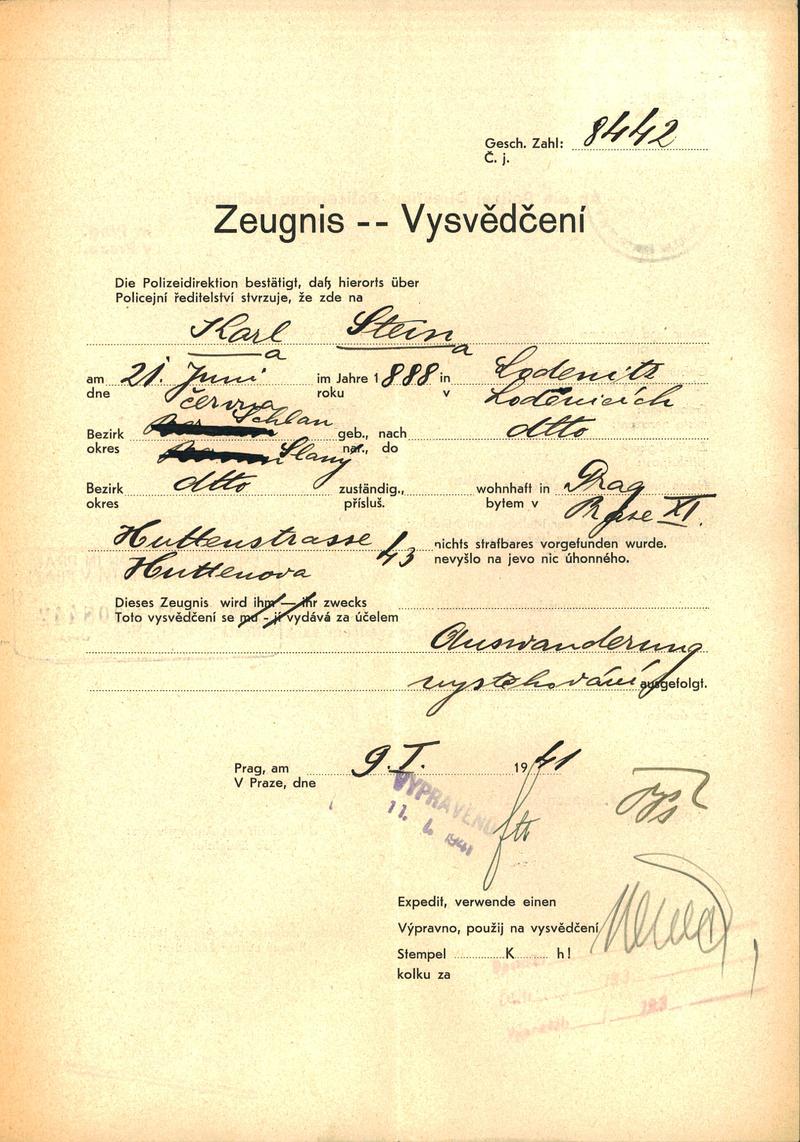 Gesch. Zahl: 8442
Č. j.
Zeugnis -- Vysvědčení
Die Polizeidirektion bestätigt, daß hierorts über
Policejní ředitelství stvrzuje, že zde na
Karl Stein
a a
am 21. Juni im Jahre 1888 in Lodenitz
dne června roku v Loděnicích
Bezirk Schlan geb., nach dtto
okres Slaný nar., do
Bezirk dtto zuständig., wohnhaft in Prag
okres přísluš. bytem v Praze XI.
Huttenstrasse 43 nichts strafbares vorgefunden wurde.
Huttenova nevyšlo na jevo nic úhonného.
Dieses Zeugnis wird ihm — ihr zwecks
Toto vysvědčení se mu - jí vydává za účelem
Auswanderung
vystěhování ausgefolgt.
Prag, am 9. I. 1941
V Praze, dne
VYPRAVENO
11. I. 1941
Expedit, verwende einen
Výpravno, použij na vysvědčení
Stempel K h!
kolku za